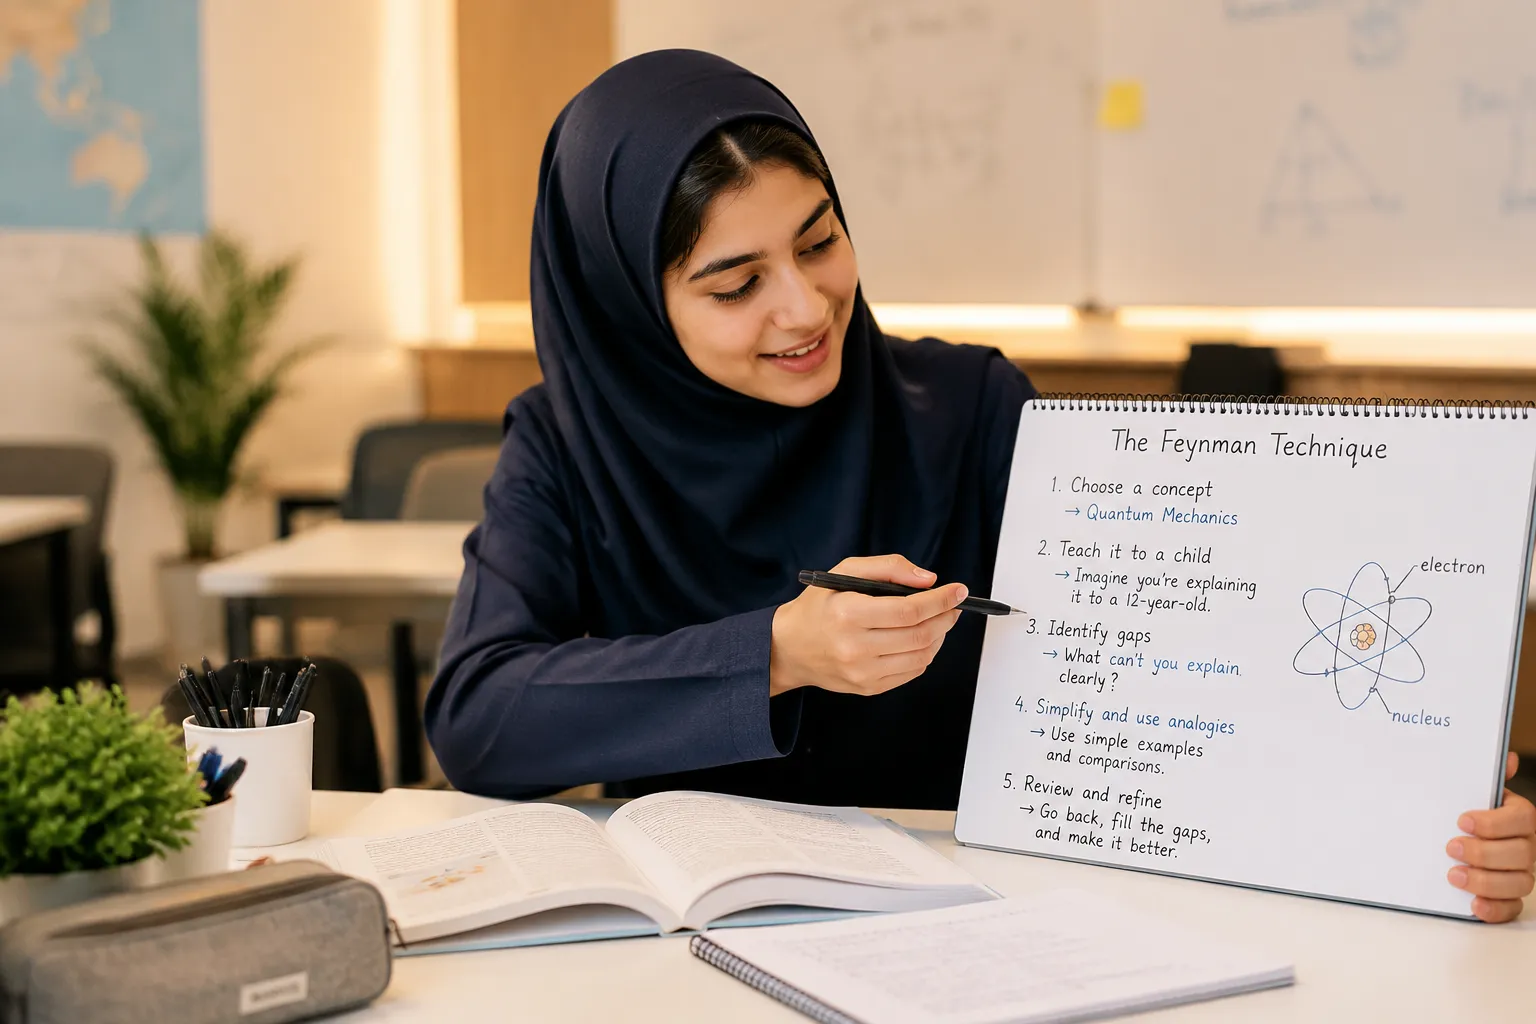 The Feynman Technique
1. Choose a concept
→ Quantum Mechanics
2. Teach it to a child
→ Imagine you're explaining
it to a 12-year-old.
3. Identify gaps
→ What can't you explain
clearly?
4. Simplify and use analogies
→ Use simple examples
and comparisons.
5. Review and refine
→ Go back, fill the gaps,
and make it better.
electron
nucleus